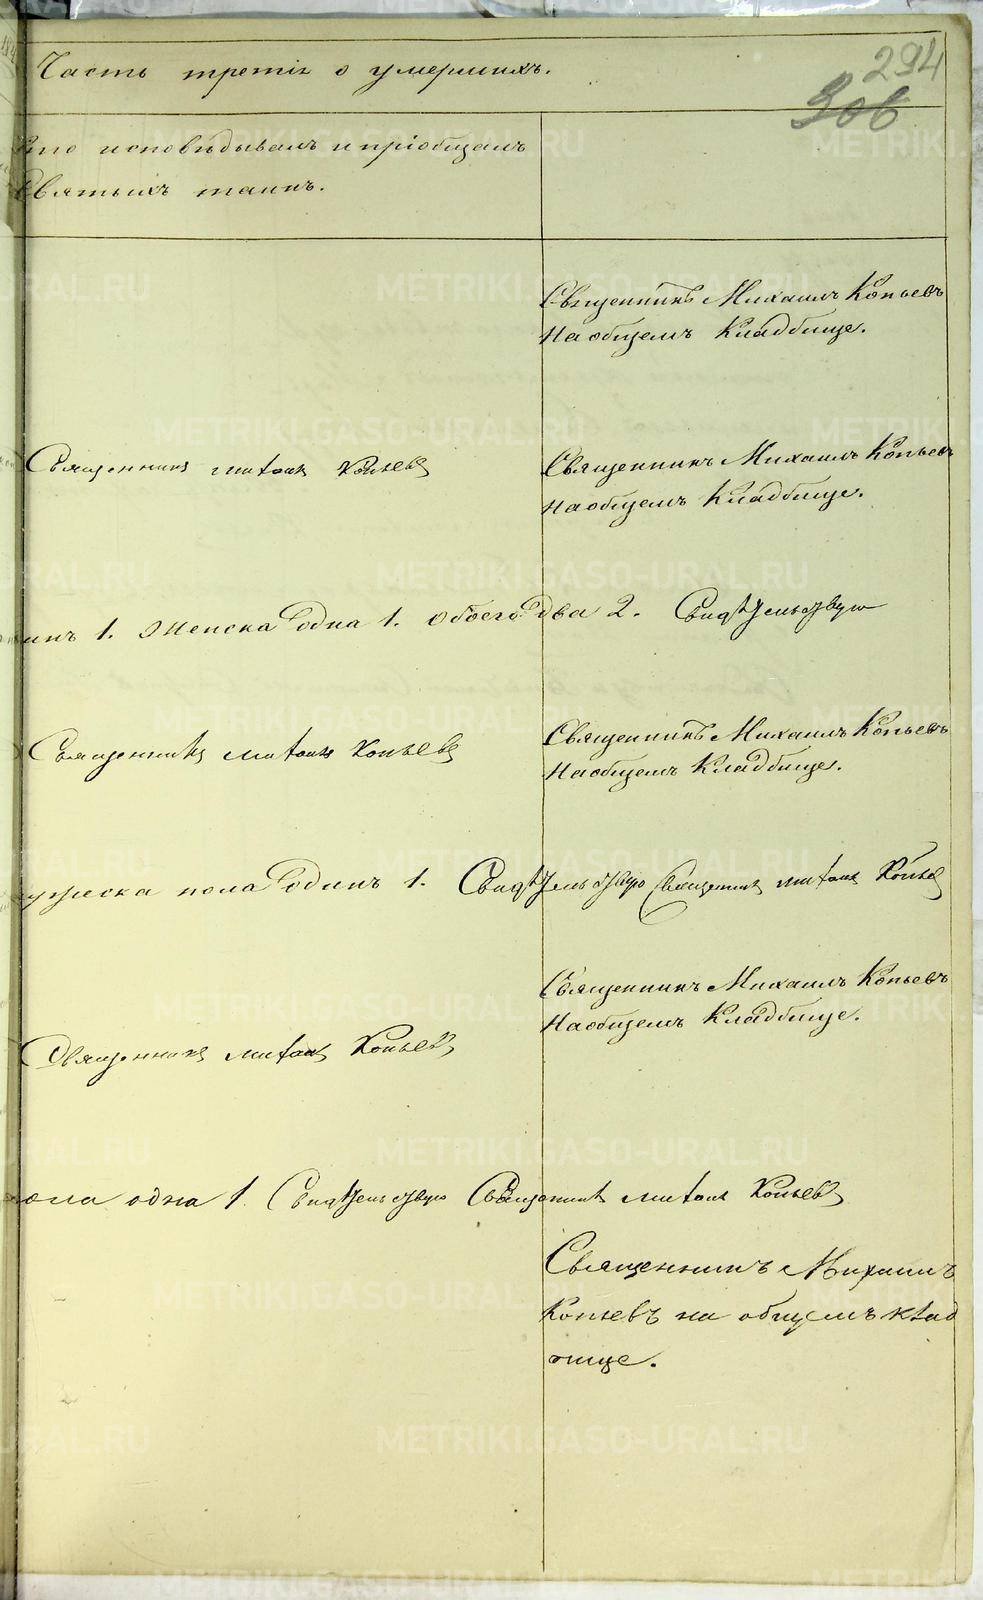 Часть третія о умершихъ.
294
306
Кто исповѣдывалъ и пріобщалъ
Святыхъ таинъ.
Священникъ Михаилъ Копьевъ
на общемъ Кладбище.
Священникъ Михаилъ Копьевъ
Священникъ Михаилъ Копьевъ
на общемъ Кладбище.
инъ 1. Женска одна 1. обоего два 2. Свидѣтельствую
Священникъ Михаилъ Копьевъ
Священникъ Михаилъ Копьевъ
на общемъ Кладбище.
ужеска пола одинъ 1. Свидѣтельствую Священникъ Михаилъ Копьевъ
Священникъ Михаилъ Копьевъ
на общемъ Кладбище.
Священникъ Михаилъ Копьевъ
ола одна 1 Свидѣтельствую Священникъ Михаилъ Копьевъ
Священникъ Михаилъ
Копьевъ на общемъ клад
бище.
METRIKI.GASO-URAL.RU